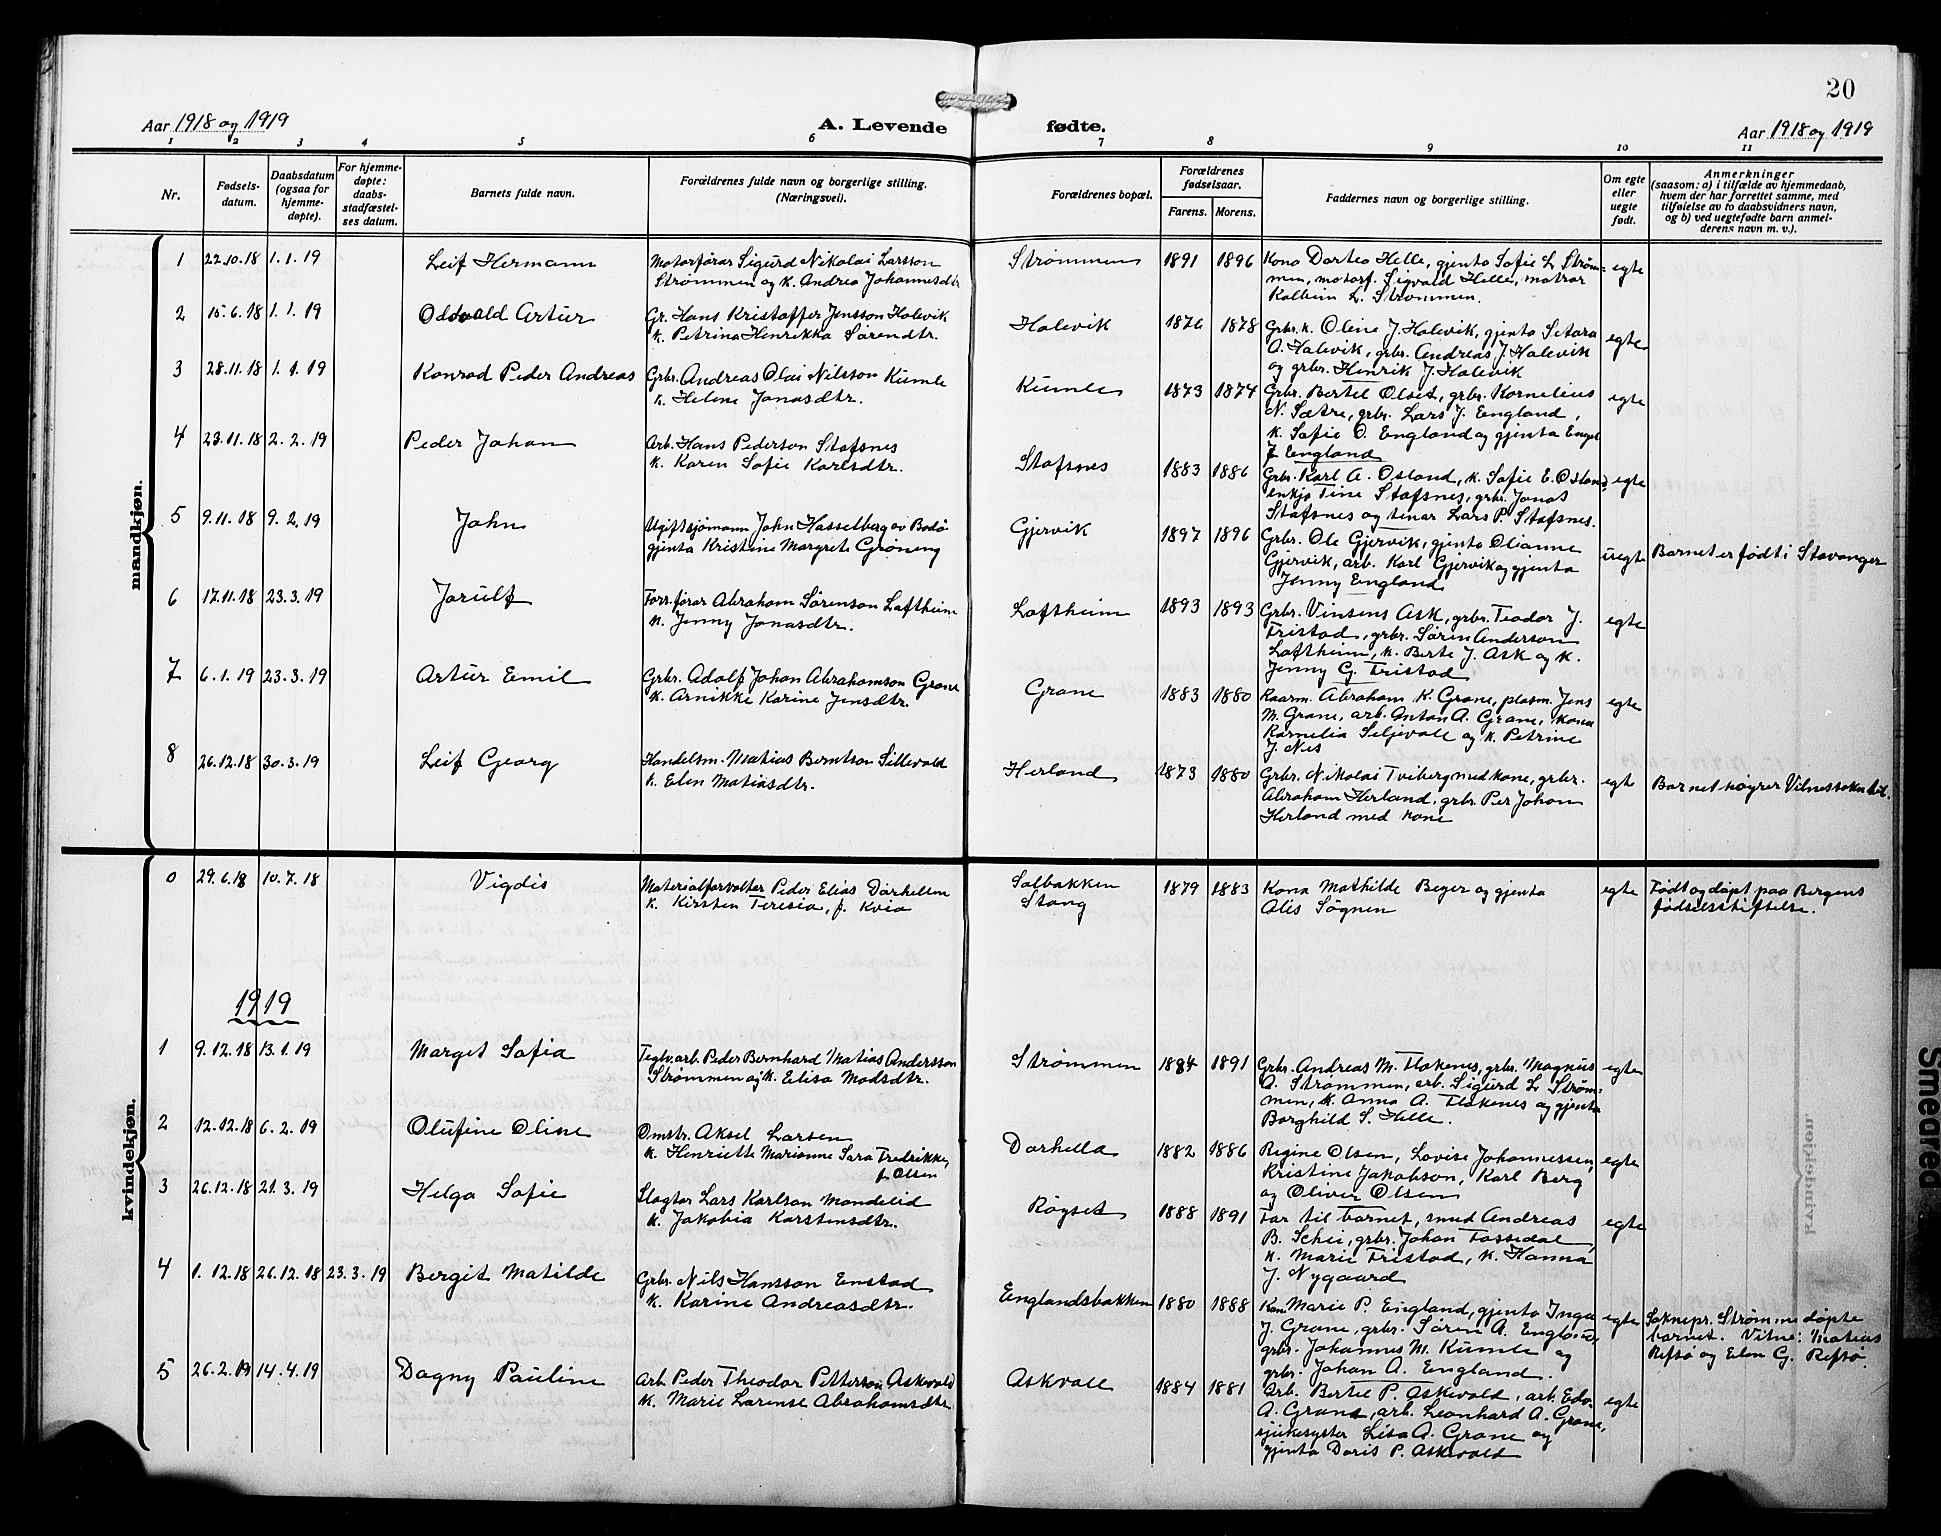 20
Aar 1918 og 1919
A. Levende fødte.
Aar 1918 og 1919
1 2 3 4 5 6 7 8 9 10 11
Nr.
Fødsels-
datum.
Daabsdatum
(ogsaa for
hjemme-
døpte).
For hjemme-
døpte:
daabs-
stadfæstel-
ses datum.
Barnets fulde navn.
Forældrenes fulde navn og borgerlige stilling.
(Næringsvei).
Forældrenes bopæl.
Forældrenes
fødselsaar.
Farens. Morens.
Faddernes navn og borgerlige stilling.
Om egte
eller
uegte
født.
Anmerkninger
(saasom: a) i tilfælde av hjemmedaab,
hvem der har forrettet samme, med
tilføielse av to daabsvidners navn,
og b) ved uegtefødte barn anmel-
derens navn m. v.).
mandkjøn.
1 22.10.18 1.1.19 Leif Hermann
Motorfører Sigurd Nikolai Larsson
Strømmen og k. Andrea Johannesdtr
Strømmen 1891 1896
Kona Dortea Helle, gjenta Sofie L. Strøm-
men, motorf. Sigvald Helle, matros
Kolbein L. Strømmen.
egte
2 15.6.18 1.1.19 Odvald Artur
Gr. Hans Kristoffer Jensson Holevik
k. Petrina Henrikka Sørendtr.
Holevik 1876 1878
Grbr. k. Oline J. Holevik, gjenta Setora
O. Holevik, grbr. Andreas J. Holevik
og grbr. Henrik J. Holevik
egte
3 28.11.18 1.1.19 Konrad Peder Andreas
Grbr. Andreas Olai Nilsson Kumle
k. Helene Jonasdtr.
Kumle 1873 1874
Grbr. Bertel Olset, grbr. Kornelius
N. Sætre, grbr. Lars J. England,
k. Sofie O. England og gjenta Engel
J. England
egte
4 23.11.18 2.2.19 Peder Johan
Arb. Hans Pederson Stafsnes
k. Karen Sofie Karlsdtr.
Stafsnes 1883 1886
Grbr. Karl A. Osland, k. Sofie E. Osland,
enkja Tine Stafsnes, grbr. Jonas
Stafsnes og tenar Lars P. Stafsnes.
egte
5 9.11.18 9.2.19 John
Ugift sjømann John Hasselberg av Bodø
gjenta Kristine Margrete Grøneng
Gjervik 1897 1896
Grbr. Ole Gjervik, gjenta Olianne
Gjervik, arb. Karl Gjervik og gjenta
Jenny England
uegte
Barnet er født i Stavanger
6 17.11.18 23.3.19 Jorulf
Forr.fører Abraham Sørenson Loftheim
k. Jenny Jonasdtr.
Loftheim 1893 1893
Grbr. Vinsens Ask, grbr. Teodor J.
Tristad, grbr. Søren Anderson
Loftheim, k. Berte J. Ask og k.
Jenny G. Tristad
egte
7 6.1.19 23.3.19 Artur Emil
Grbr. Adolf Johan Abrahamson Grane
k. Arnikke Karine Jensdtr.
Grane 1883 1880
Kaarm. Abraham K. Grane, plasm. Jens
M. Grane, arb. Anton A. Grane, kona
Kornelia Seljevoll og k. Petrine
J. Nes
egte
8 26.12.18 30.3.19 Leif Georg
Handelsm. Matias Berntson Sillevold
k. Elen Matiasdtr.
Herland 1873 1880
Grbr. Nikolai Tviberg med kone, grbr.
Abraham Herland, grbr. Per Johan
Herland med kone
egte
Barnet høyrer Vilnessokn til.
kvindekjøn.
0 29.6.18 10.7.18 Vigdis
Materialforvalter Peder Elias Dørhellen
k. Kirsten Teresia, f. Kvia
Solbakken
Stang
1879 1883
Kona Mathilde Beyer og gjenta
Alis Søgnen
egte
Født og døpt paa Bergens
fødselsstiftelse.
1919
1 9.12.18 13.1.19 Marget Sofia
Teglv.arb. Peder Bernhard Matias Andersson
Strømmen og k. Elisa Madsdtr.
Strømmen 1884 1891
Grbr. Andreas M. Flokenes, grbr. Magnus
A. Strømmen, arb. Sigurd L. Strøm-
men, k. Anna A. Flokenes og gjenta
Borghild S. Helle.
egte
2 12.12.18 6.2.19 Olufine Oline
Omstr. Aksel Larsen
k. Henriette Marianne Sara Fredrikke,
f. Olsen
Dørhella 1882 1886
Regine Olsen, Lovise Johannessen,
Kristine Jakobson, Karl Berg
og Oliver Olsen
egte
3 26.12.18 21.3.19 Helga Sofie
Slagter Lars Karlson Mondelid
k. Jakobia Karstensdtr.
Røyset 1888 1891
Far til barnet, smed Andreas
B. Schei, grbr. Johan Fossedal,
k. Marie Tristad, k. Hanna
J. Nygaard
egte
4 1.12.18 26.12.18 23.3.19 Bergit Matilde
Grbr. Nils Hansson Enstad
k. Karine Andreasdtr.
Englandsbakken 1880 1888
Kona Marie P. England, gjenta Inga
J. Grane, grbr. Søren A. England,
grbr. Johannes M. Kumle og
grbr. Johan A. England.
egte
Soknepr. Strømme døpte
barnet. Vitne: Matias
Refsø og Elen G. Refsø.
5 26.2.19 14.4.19 Dagny Pauline
Arb. Peder Theodor Petterson Askvold
k. Marie Larense Abrahamsdtr
Askvoll 1884 1881
Arb. Bertel P. Askvold, arb. Edv.
A. Grane, arb. Leonhard A. Grane,
sjukesyster Lisa A. Grane og
gjenta Doris P. Askvold
egte
Smeared